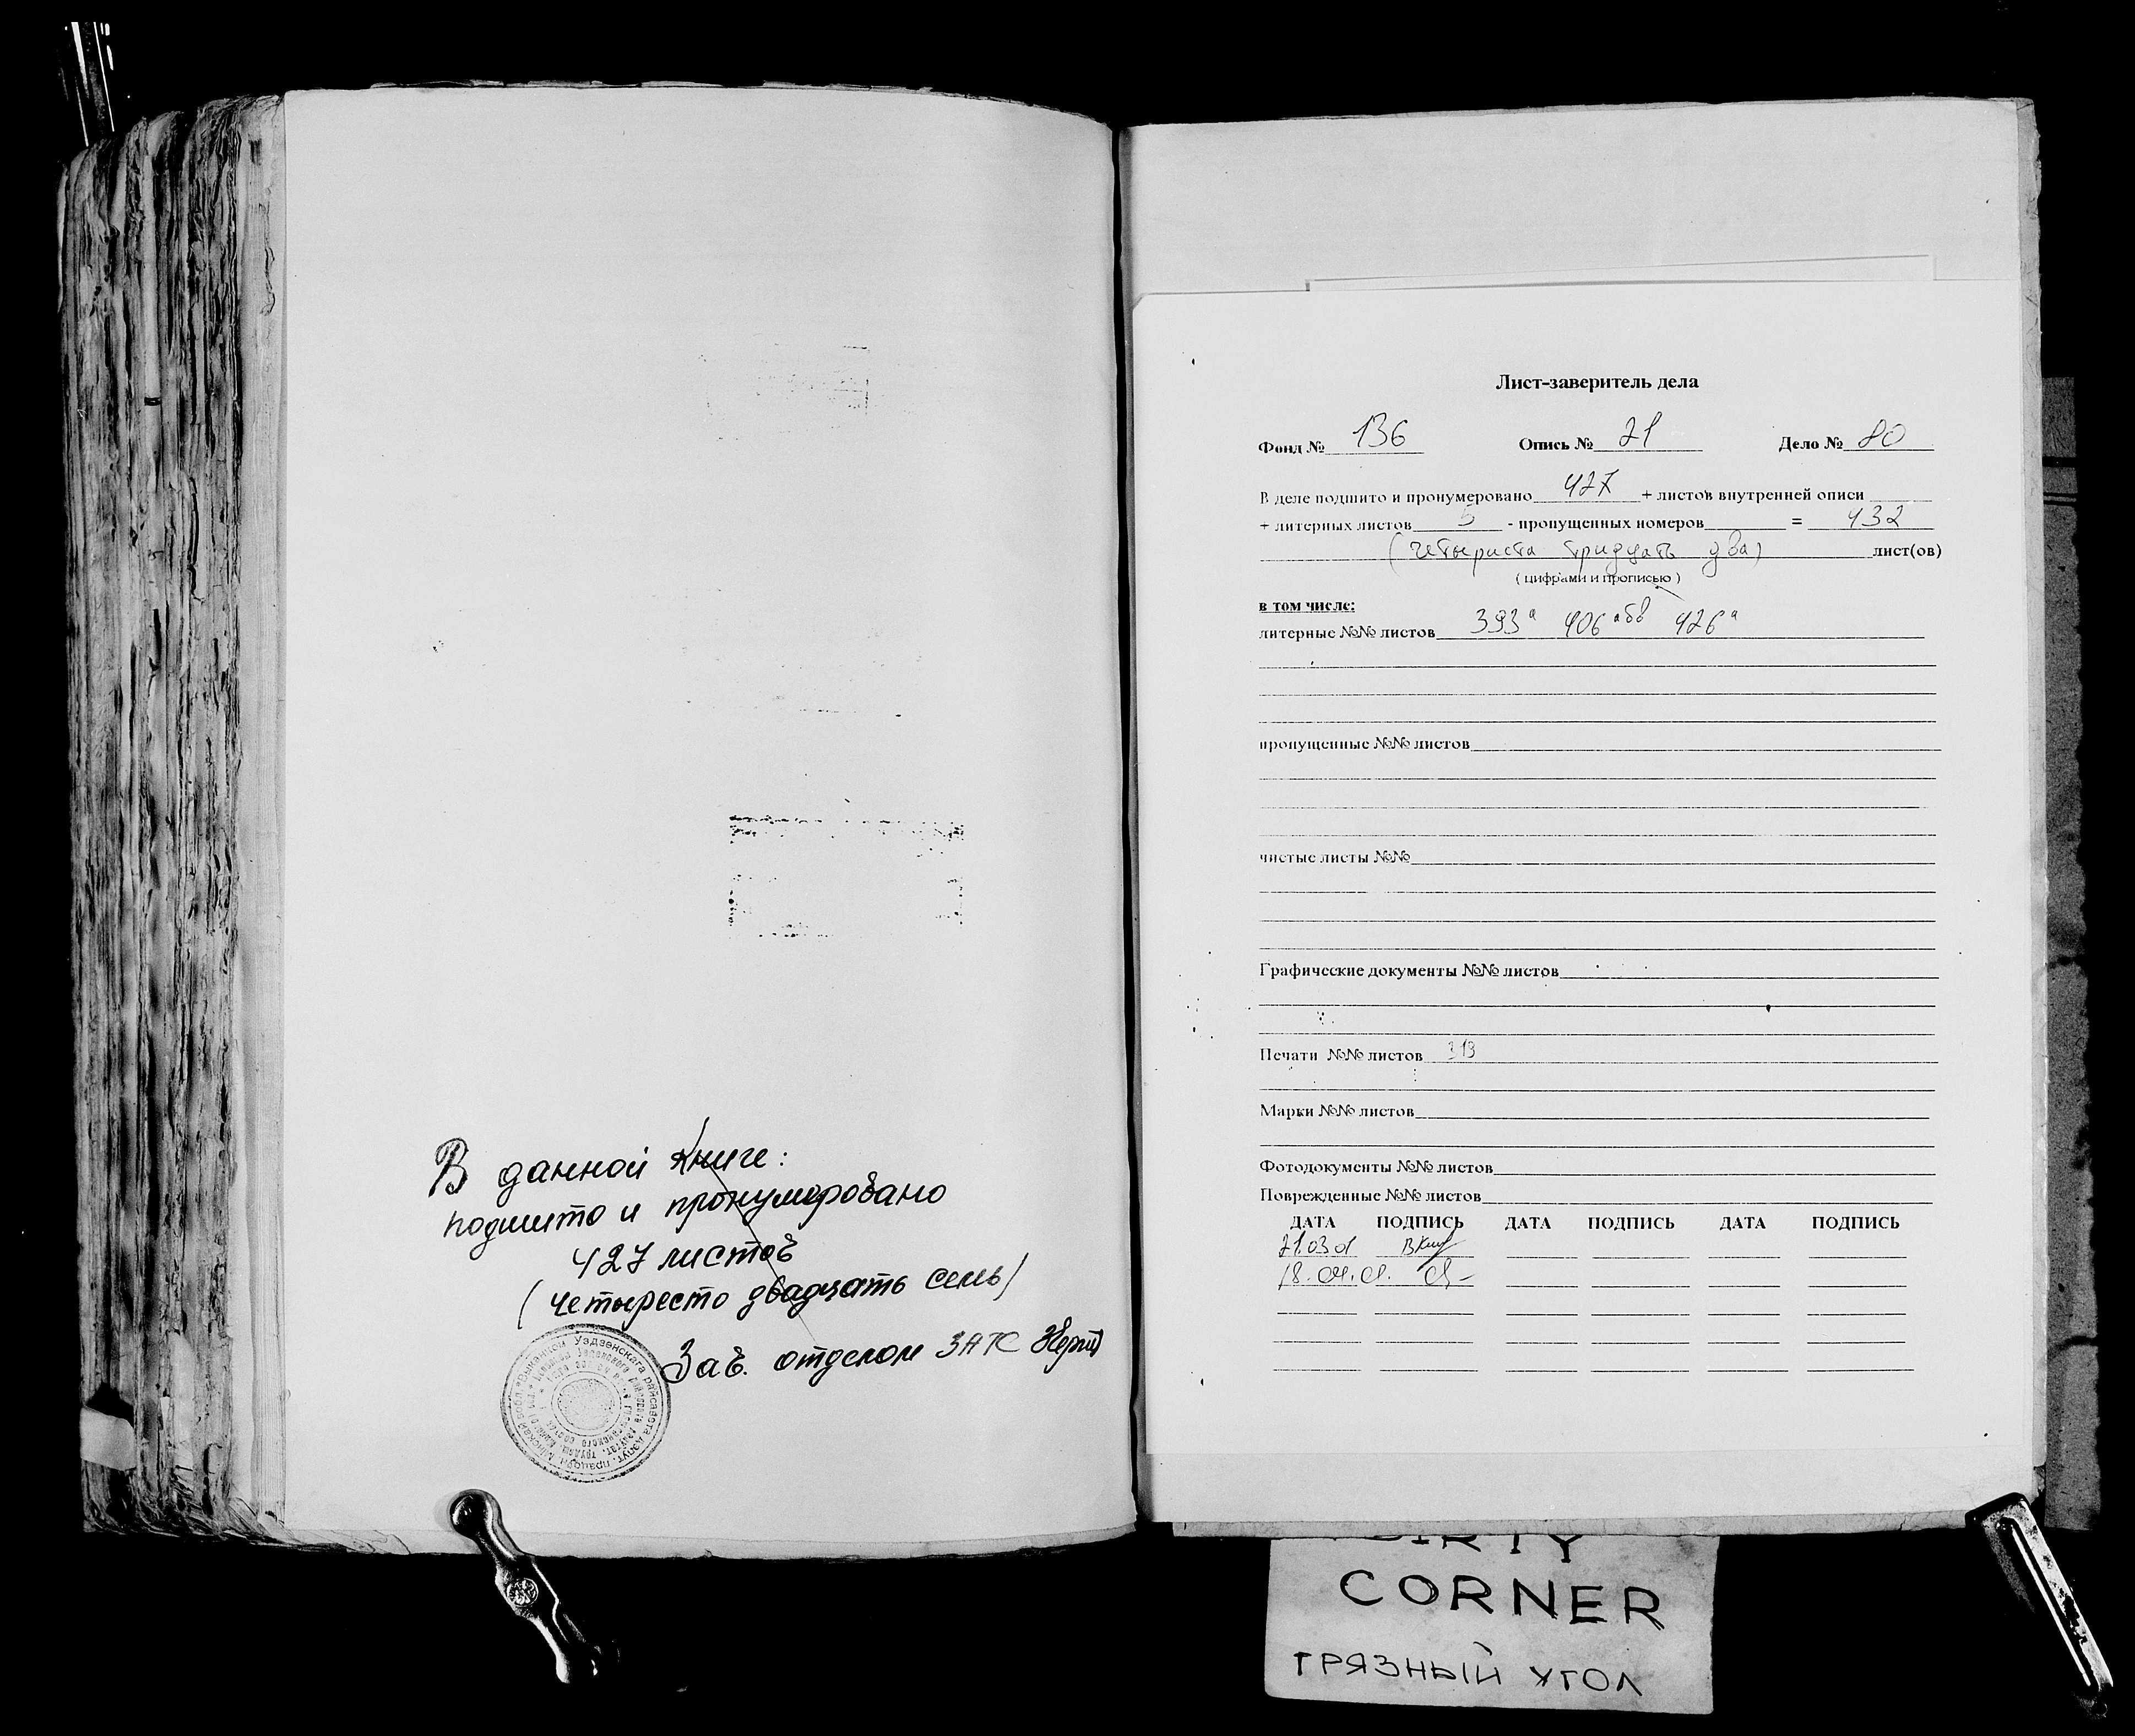 В данной Книге:
подшито и пронумеровано
427 листов
(четыресто двадцать семь)
Зав. отделом ЗАГС
Уздзенскага райсавета дэпут. працоўн. Мінскай вобл.
Лист-заверитель дела
Фонд № 136 Опись № 21 Дело № 80
В деле подшито и пронумеровано 427 + листов внутренней описи
+ литерных листов 5 - пропущенных номеров = 432
(четыриста тридцать два) лист(ов)
( цифрами и прописью )
в том числе:
литерные №№ листов 393а 406абв 426а
пропущенные №№ листов
чистые листы №№
Графические документы №№ листов
Печати №№ листов 313
Марки №№ листов
Фотодокументы №№ листов
Поврежденные №№ листов
ДАТА ПОДПИСЬ ДАТА ПОДПИСЬ ДАТА ПОДПИСЬ
21.03 01
18.04.01.
DIRTY
CORNER
ГРЯЗНЫЙ УГОЛ